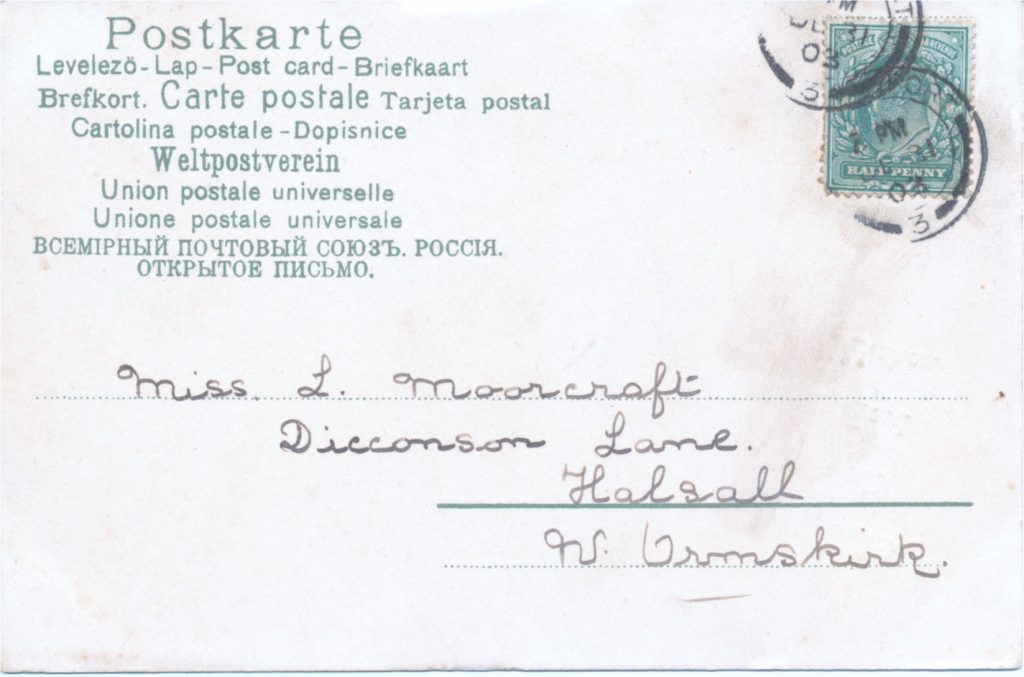 Postkarte
Levelező-Lap-Post card-Briefkaart
Brefkort. Carte postale Tarjeta postal
Cartolina postale-Dopisnice
Weltpostverein
Union postale universelle
Unione postale universale
ВСЕМІРНЫЙ ПОЧТОВЫЙ СОЮЗЪ. РОССІЯ.
ОТКРЫТОЕ ПИСЬМО.
POSTAGE & REVENUE
HALF PENNY
PM
03
3
PM
03
3
Miss. L. Moorcraft
Dicconson Lane.
Halsall
N. Ormskirk.